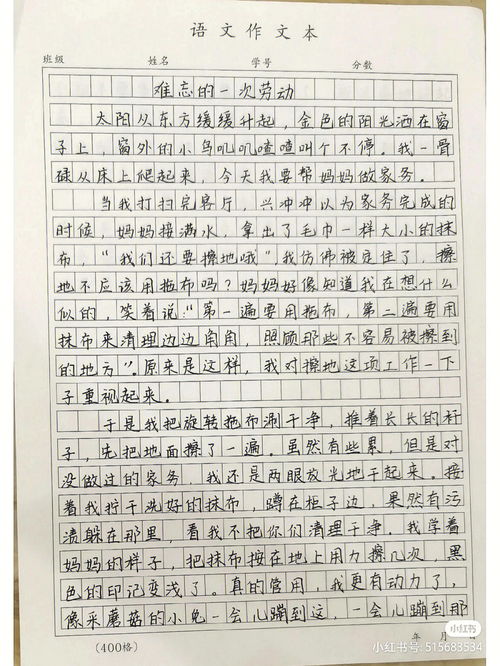 语文作文本
班级 姓名 学号 分数
难忘的一次劳动
太阳从东方缓缓升起，金色的阳光洒在窗
子上，窗外的小鸟叽叽喳喳叫个不停。我一骨
碌从床上爬起来，今天我要帮妈妈做家务。
当我打扫完客厅，兴冲冲以为家务完成的
时候，妈妈接满水，拿出了毛巾一样大小的抹
布，“我们还要擦地哦”我仿佛被定住了，擦
地不应该用拖布吗？妈妈好像知道我在想什么
似的，笑着说：“第一遍要用拖布，第二遍要用
抹布来清理边边角角，照顾那些不容易被擦到
的地方”。原来是这样，我对擦地这项工作一下
子重视起来。
于是我把旋转拖布涮干净，推着长长的杆
子，先把地面擦了一遍。虽然有些累，但是对
没做过的家务，我还是两眼放光地干起来。接
着我拧干洗好的抹布，蹲在柜子边，果然有污
渍躲在那里，看我不把你们清理干净。我学着
妈妈的样子，把抹布按在地上用力擦几次，黑
色的印记变浅了。真的管用，我更有动力了，
像采蘑菇的小兔一会儿蹦到这，一会儿蹦到那
（400格） 年 月 日
小红书
小红书号：515683534